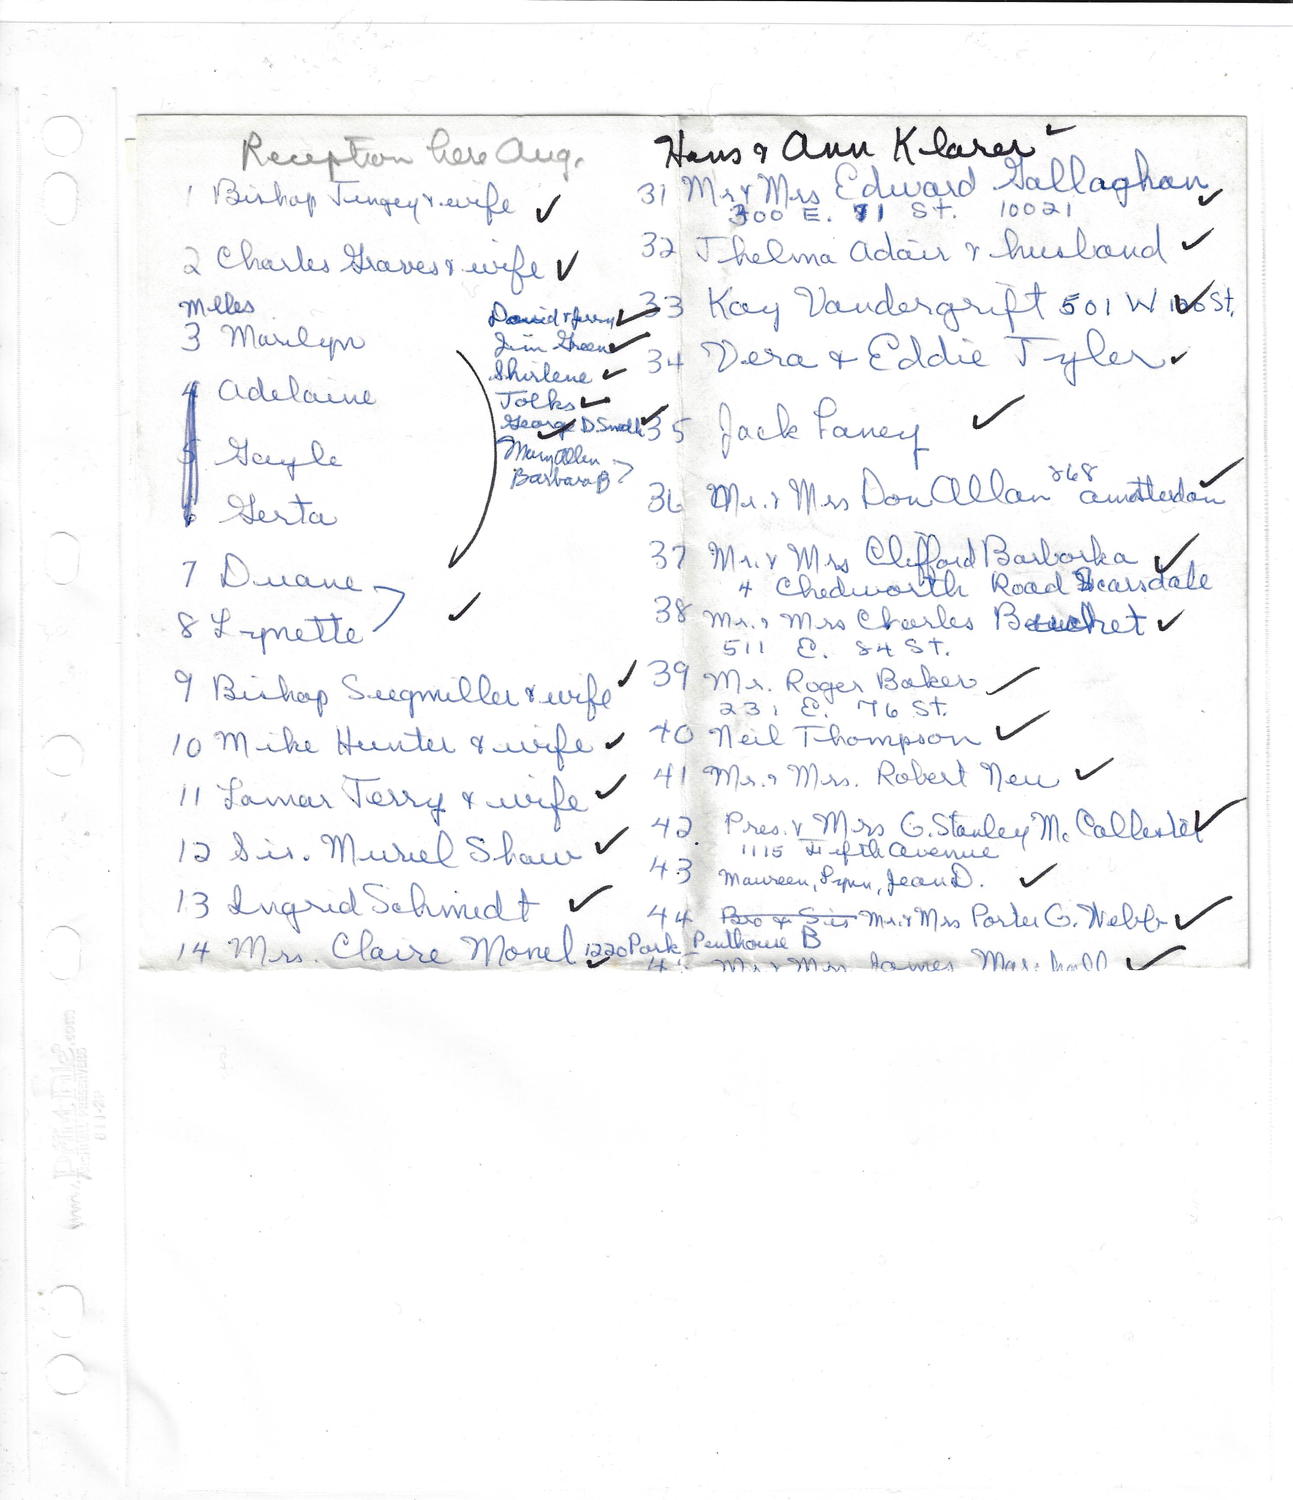 Reception here Aug.
1 Bishop Tingey & wife ✓
2 Charles Graves & wife ✓
Mlles
3 Marilyn
4 Adelaine
5 Gayle
6 Gerta
7 Duane
8 Lynette ✓
9 Bishop Seegmiller & wife ✓
10 Mike Hunter & wife ✓
11 Lamar Terry & wife ✓
12 Sis. Muriel Shaw ✓
13 Ingrid Schmidt ✓
14 Mrs. Claire Monel 1220 Park Penthouse B ✓
David & Jerry ✓
Jim Green ✓
Shirlene ✓
Tolks ✓
George D. Smith ✓
Mary Allen
Barbara B
Hans & Ann Klarer ✓
31 Mr & Mrs Edward Gallaghan ✓
300 E. 71 St. 10021
32 Thelma Adair & husband ✓
33 Kay Vandergrift 501 W St. ✓
34 Vera & Eddie Tyler ✓
35 Jack Laney ✓
36 Mr. & Mrs Don Allan 268 Amsterdam ✓
37 Mr. & Mrs Clifford Barborka ✓
4 Chedworth Road Scarsdale
38 Mr. & Mrs Charles ✓
511 E. 84 St.
39 Mr. Roger Baker ✓
231 E. 76 St.
40 Neil Thompson ✓
41 Mr. & Mrs. Robert Neu ✓
42 Pres. & Mrs G. Stanley McCallester ✓
1115 Fifth Avenue
43 Maureen, Lynn, Jean D. ✓
44 Bro & Sis Mr. & Mrs Porter G. Webb ✓
Mr & Mrs James Marshall ✓